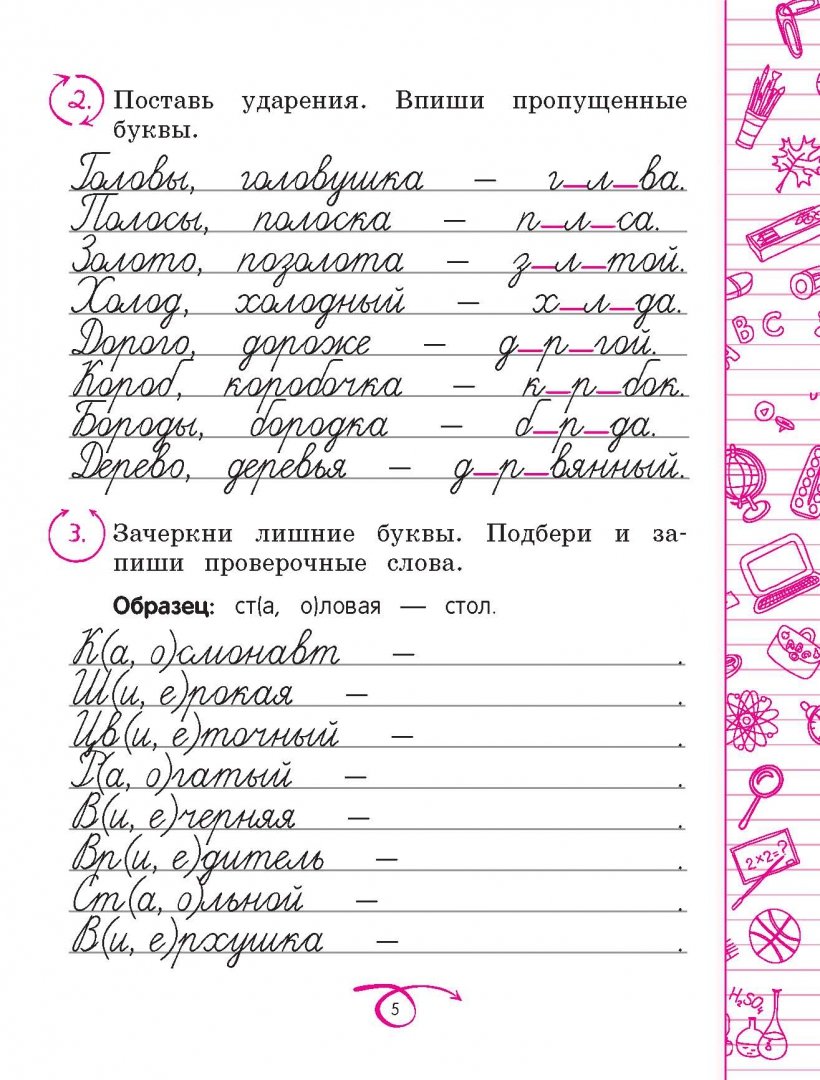 2. Поставь ударения. Впиши пропущенные
буквы.
Головы, головушка – г_л_ва.
Полосы, полоска – п_л_са.
Золото, позолота – з_л_той.
Холод, холодный – х_л_да.
Дорого, дороже – д_р_гой.
Короб, коробочка – к_р_бок.
Бороды, бородка – б_р_да.
Дерево, деревья – д_р_вянный.
3. Зачеркни лишние буквы. Подбери и за-
пиши проверочные слова.
Образец: ст(а, о)ловая — стол.
К(а, о)смонавт – .
Ш(и, е)рокая – .
Цв(и, е)точный – .
Р(а, о)гатый – .
В(и, е)черняя – .
Вр(и, е)дитель – .
Ст(а, о)льной – .
В(и, е)рхушка – .
5
A B C
ABC
2×2=?
H₂SO₄